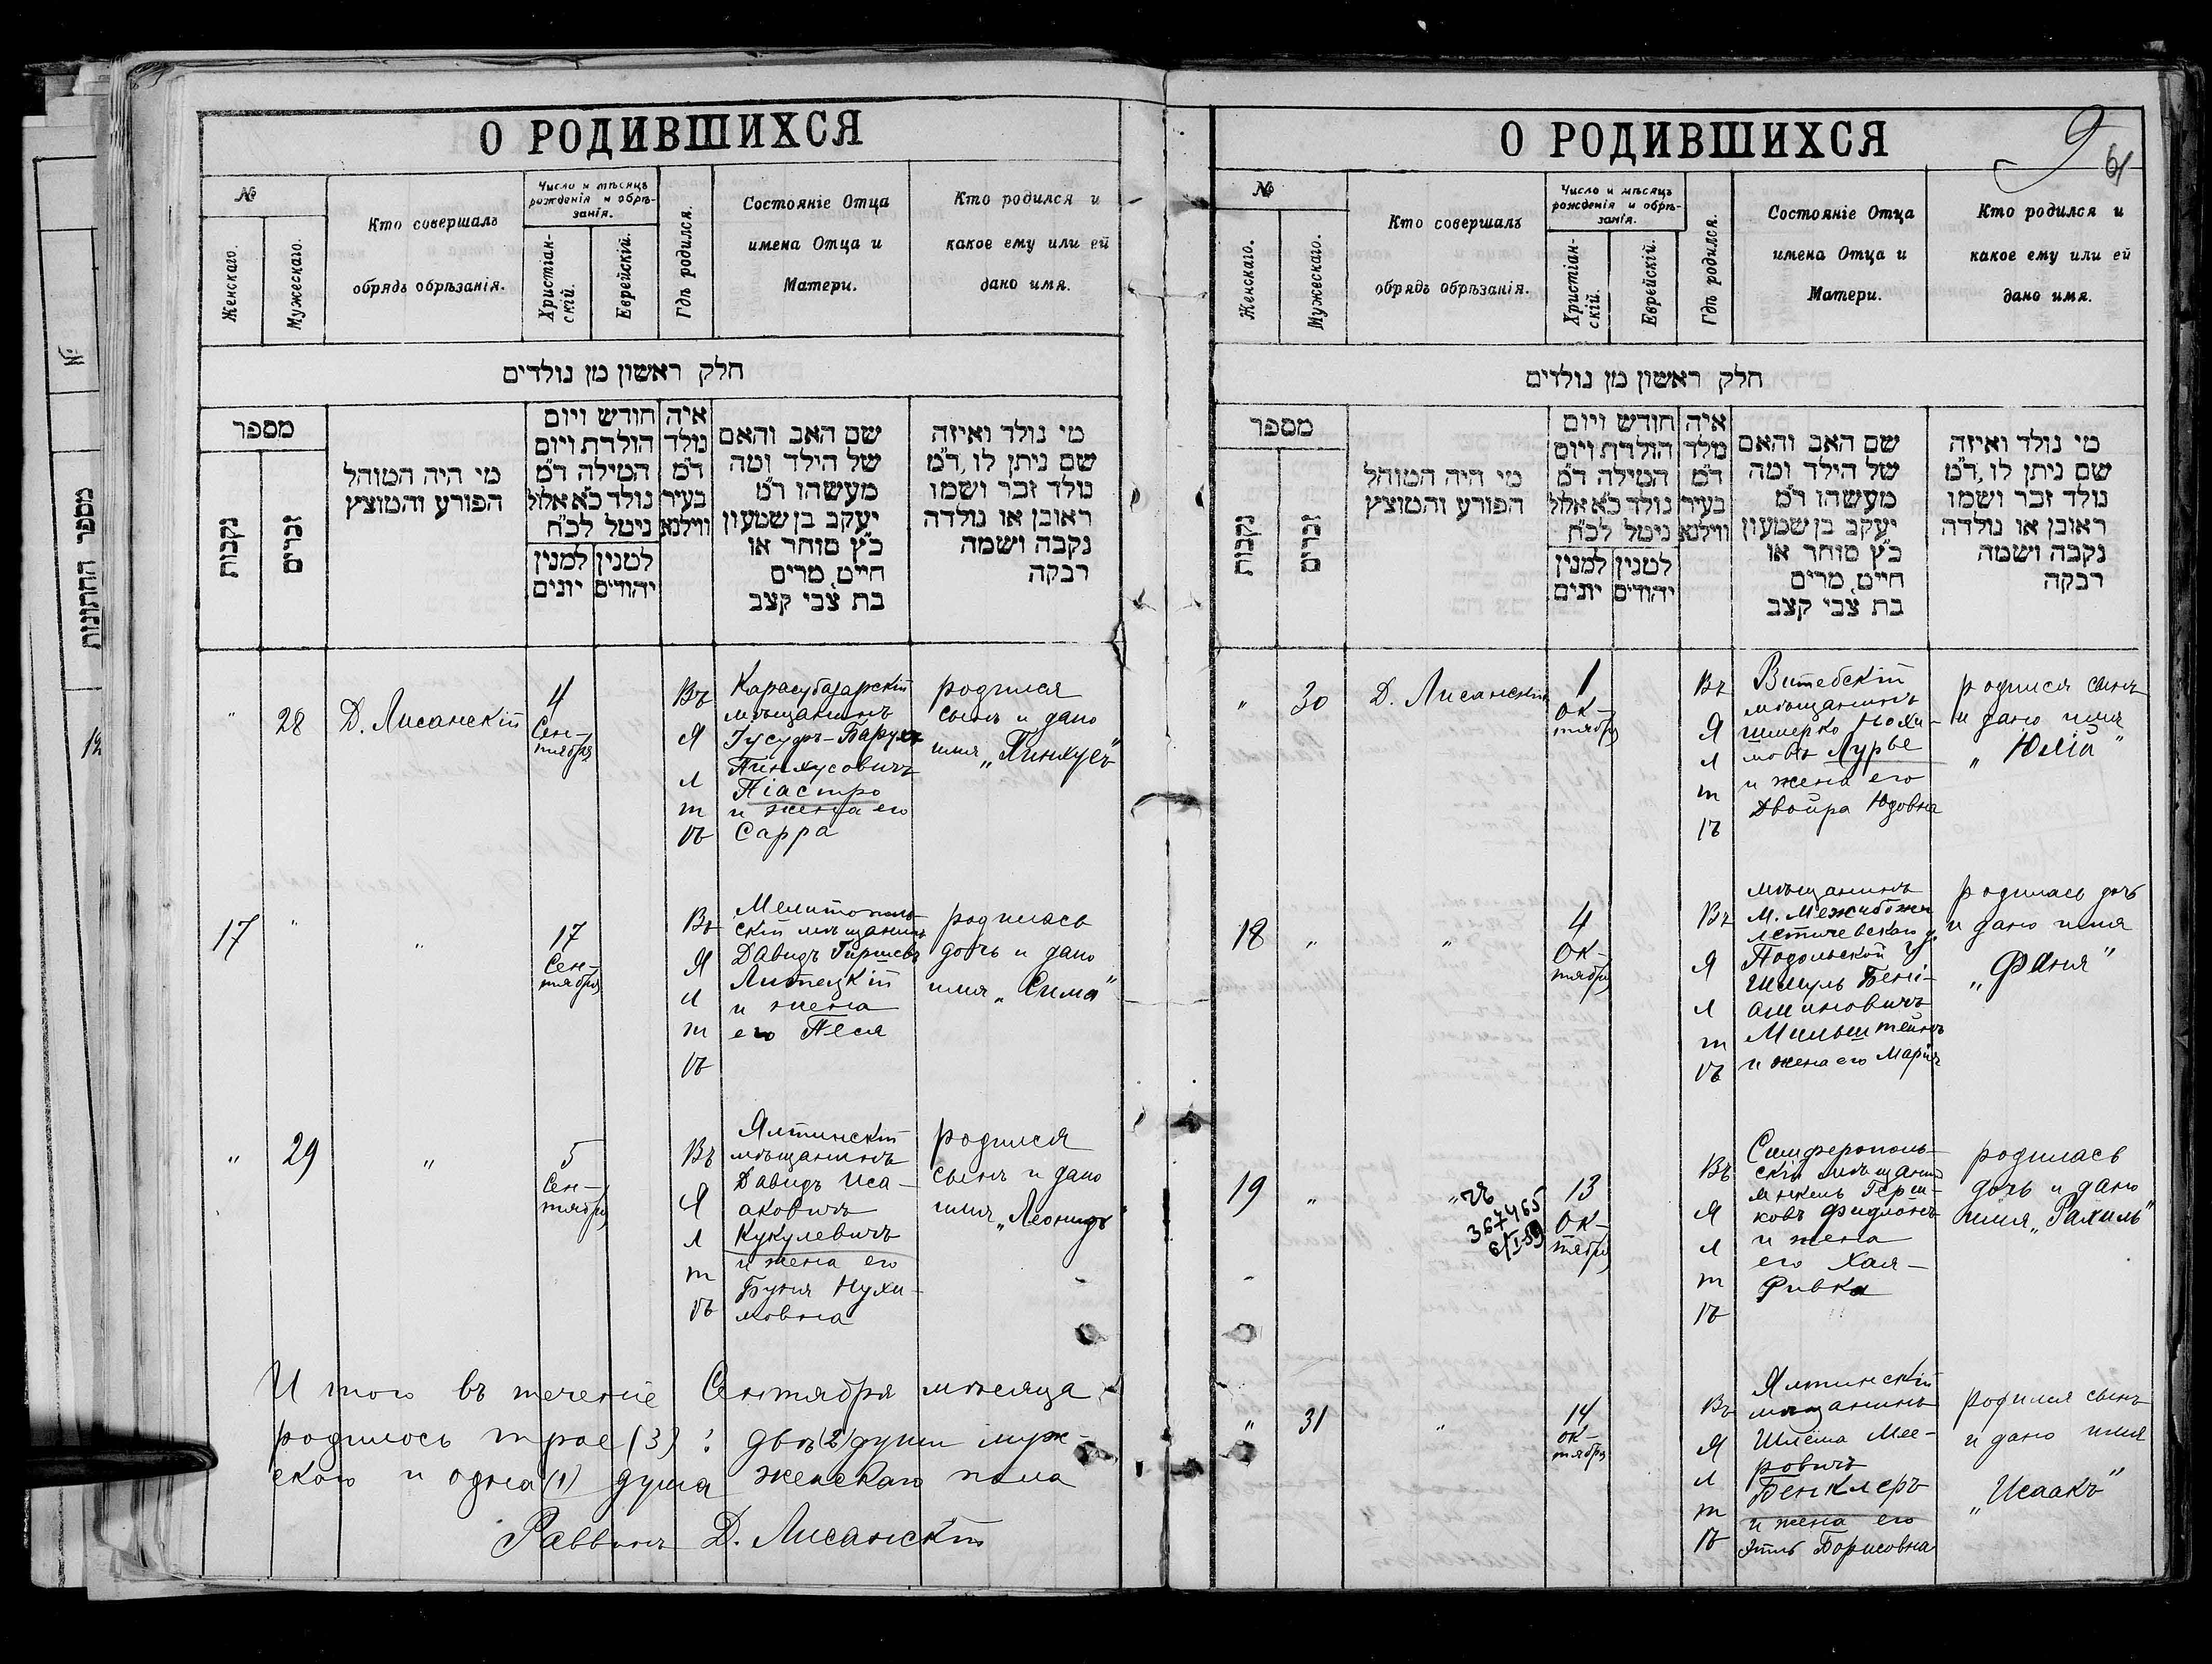 О РОДИВШИХСЯ
№
Женскаго.
Мужескаго.
Кто совершалъ
обрядъ обрѣзанія.
Число и мѣсяцъ
рожденія и обрѣ-
занія.
Христіан-
скій.
Еврейскій.
Гдѣ родился.
Состояніе Отца
имена Отца и
Матери.
Кто родился и
какое ему или ей
дано имя.
חלק ראשון מן נולדים
מספר
נקבות
זכרים
מי היה המוהל
הפורע והמוצץ
חודש ויום
הולדת ויום
המילה ד"מ
נולד כ"א אלול
ניטל לכ"ח
למנין
יונים
למנין
יהודים
איה
נולד
ד"מ
בעיר
ווילנא
שם האב והאם
של הילד ומה
מעשהו ד"מ
יעקב בן שמעון
כ"ץ סוחר או
חייט, מרים
בת צבי קצב
מי נולד ואיזה
שם ניתן לו, ד"מ
נולד זכר ושמו
ראובן או נולדה
נקבה ושמה
רבקה
" 28 Д. Лисанскій
4
Сен-
тября
Въ
Я
л
т
ѣ
Карасубазарскій
мѣщанинъ
Іусуфъ-Барухъ
Пинхусовичъ
Піастро
и жена его
Сарра
родился
сынъ и дано
имя „Пинхусъ"
17 " "
17
Сен-
тября
Въ
Я
л
т
ѣ
Мелитополь-
скій мѣщанинъ
Давидъ Гиршевъ
Литецкій
и жена
его Песя
родилась
дочь и дано
имя „Сима"
" 29 "
5
Сен-
тября
Въ
Я
л
т
ѣ
Ялтинскій
мѣщанинъ
Давидъ Иса-
аковичъ
Кукулевичъ
и жена его
Буня Нухи-
мовна
родился
сынъ и дано
имя „Леонидъ"
И того въ теченіе Сентября мѣсяца
родилось трое (3): двѣ (2) души муж-
скаго и одна (1) душа женскаго пола
Раввинъ Д. Лисанскій
מספר החתונות
№
О РОДИВШИХСЯ
9
61
№
Женскаго.
Мужескаго.
Кто совершалъ
обрядъ обрѣзанія.
Число и мѣсяцъ
рожденія и обрѣ-
занія.
Христіан-
скій.
Еврейскій.
Гдѣ родился.
Состояніе Отца
имена Отца и
Матери.
Кто родился и
какое ему или ей
дано имя.
חלק ראשון מן נולדים
מספר
נקבות
זכרים
מי היה המוהל
הפורע והמוצץ
חודש ויום
הולדת ויום
המילה ד"מ
נולד כ"א אלול
ניטל לכ"ח
למנין
יונים
למנין
יהודים
איה
נולד
ד"מ
בעיר
ווילנא
שם האב והאם
של הילד ומה
מעשהו ד"מ
יעקב בן שמעון
כ"ץ סוחר או
חייט, מרים
בת צבי קצב
מי נולד ואיזה
שם ניתן לו, ד"מ
נולד זכר ושמו
ראובן או נולדה
נקבה ושמה
רבקה
" 30 Д. Лисанскій
1
Ок-
тября
Въ
Я
л
т
ѣ
Витебскій
мѣщанинъ
Шмерко Нохи-
мовъ Лурье
и жена его
Двойра Юдовна
родился сынъ
и дано имя
„Юлій"
18 " "
4
Ок-
тября
Въ
Я
л
т
ѣ
мѣщанинъ
м. Межибожи
Летичевскаго у.
Подольской г.
Шмуль Бені-
аминовичъ
Мильштейнъ
и жена его Марія
родилась дочь
и дано имя
„Фаня"
19 " "
367465
6/I-59
13
Ок-
тября
Въ
Я
л
т
ѣ
Симферополь-
скій мѣщанинъ
Герш-
ковъ
и жена
его Хая-
Ривка
родилась
дочь и дано
имя „Рахиль"
" 31 "
14
ок-
тября
Въ
Я
л
т
ѣ
Ялтинскій
мѣщанинъ
Шлёма Мее-
ровичъ
Бенклеръ
и жена его
Этль Борисовна
родился сынъ
и дано имя
„Исаакъ"